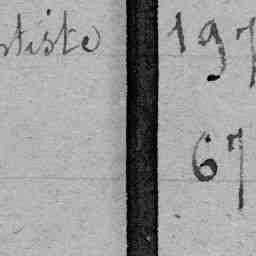 tiste 197
67